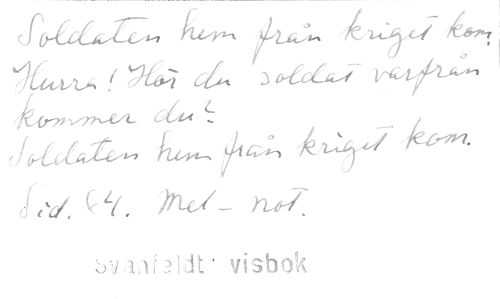 Soldaten hem från kriget kom.
Hurra! Hör du soldat varfrån
kommer du?
Soldaten hem från kriget kom.
Sid. 84. Mel - not.
Svanfeldt' visbok